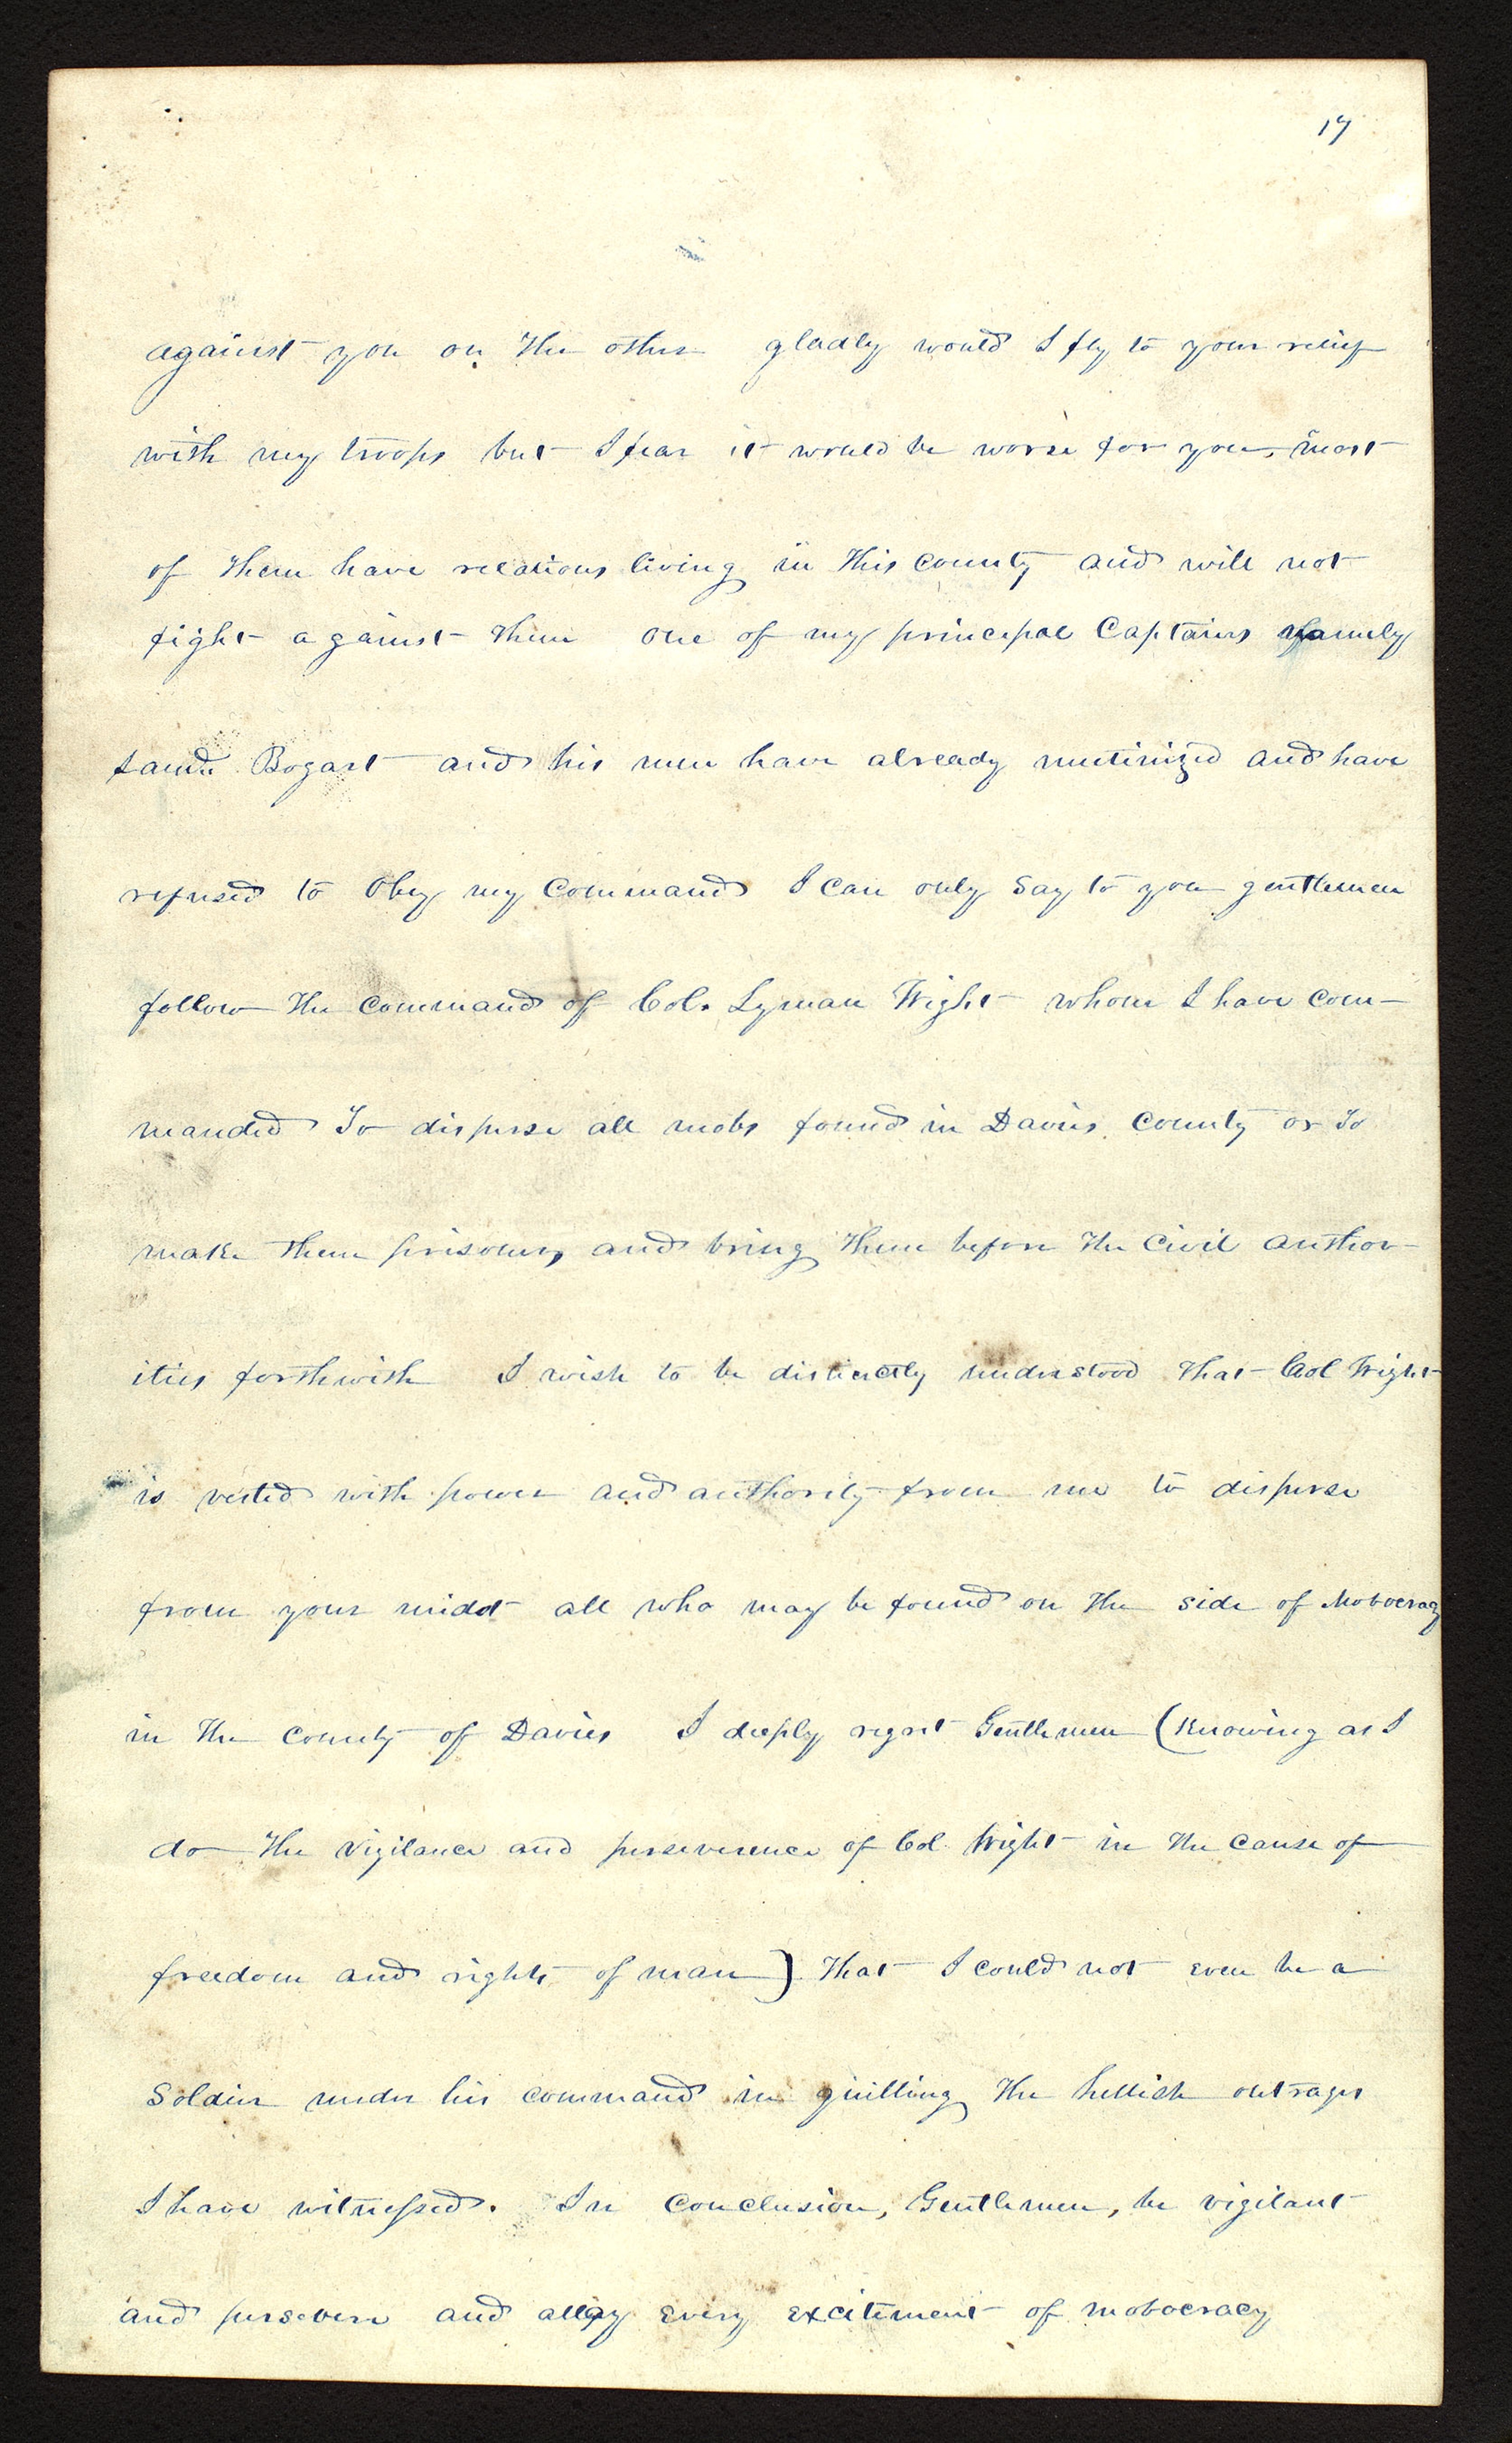 17
against you on the other gladly would I fly to your relief
with my troops but I fear it would be worse for you, most
of them have relations living in this County and will not
fight against them one of my principal Captains namely
Bogart and his men have already mutinized and have
refused to Obey my Command I can only Say to you gentlemen
follow the Command of Col. Lyman Wight whom I have com-
manded To disperse all mobs found in Davies County or To
make them prisoners and bring them before the Civil author-
ities forthwith I wish to be distinctly understood that Col Wight
is vested with power and authority from me to disperse
from your midst all who may be found on the side of Mobocracy
in the County of Davies I deeply regret Gentlemen (Knowing as I
do the vigilance and perseverence of Col Wight in the Cause of
freedom and rights of man) that I could not even be a
Soldier under his command in quilling the hellish outrages
I have witnessed. In Conclusion, Gentlemen, be vigilant
and persevere and allay every excitement of mobocracy